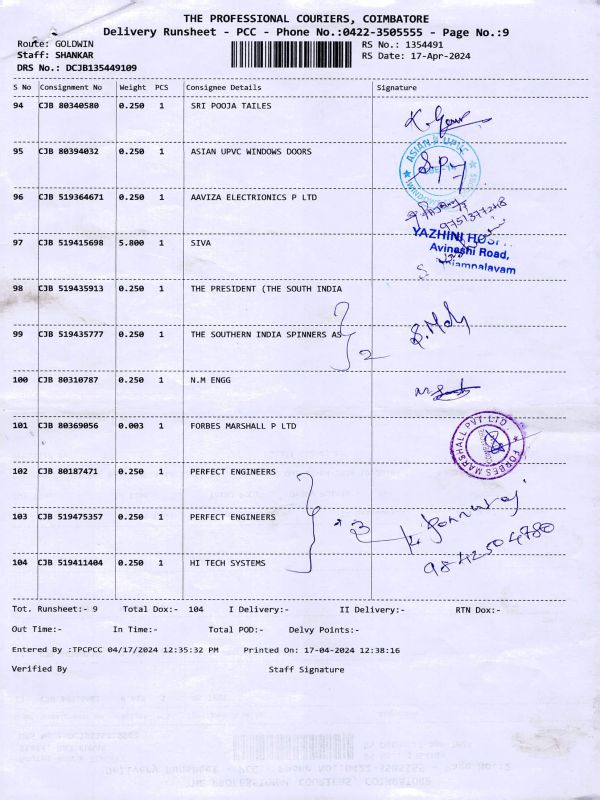 THE PROFESSIONAL COURIERS, COIMBATORE
Delivery Runsheet - PCC - Phone No.:0422-3505555 - Page No.:9
Route: GOLDWIN RS No.: 1354491
Staff: SHANKAR RS Date: 17-Apr-2024
DRS No.: DCJB135449109
S No Consignment No Weight PCS Consignee Details Signature
94 CJB 80340580 0.250 1 SRI POOJA TAILES
95 CJB 80394032 0.250 1 ASIAN UPVC WINDOWS DOORS
ASIAN UPVC
96 CJB 519364671 0.250 1 AAVIZA ELECTRIONICS P LTD
9751377248
97 CJB 519415698 5.800 1 SIVA
YAZHINI
Avinashi Road,
98 CJB 519435913 0.250 1 THE PRESIDENT (THE SOUTH INDIA
99 CJB 519435777 0.250 1 THE SOUTHERN INDIA SPINNERS AS
2
100 CJB 80310787 0.250 1 N.M ENGG
101 CJB 80369056 0.003 1 FORBES MARSHALL P LTD
FORBES MARSHALL PVT. LTD.
102 CJB 80187471 0.250 1 PERFECT ENGINEERS
103 CJB 519475357 0.250 1 PERFECT ENGINEERS
3
9842504780
104 CJB 519411404 0.250 1 HI TECH SYSTEMS
Tot. Runsheet:- 9 Total Dox:- 104 I Delivery:- II Delivery:- RTN Dox:-
Out Time:- In Time:- Total POD:- Delvy Points:-
Entered By :TPCPCC 04/17/2024 12:35:32 PM Printed On: 17-04-2024 12:38:16
Verified By Staff Signature